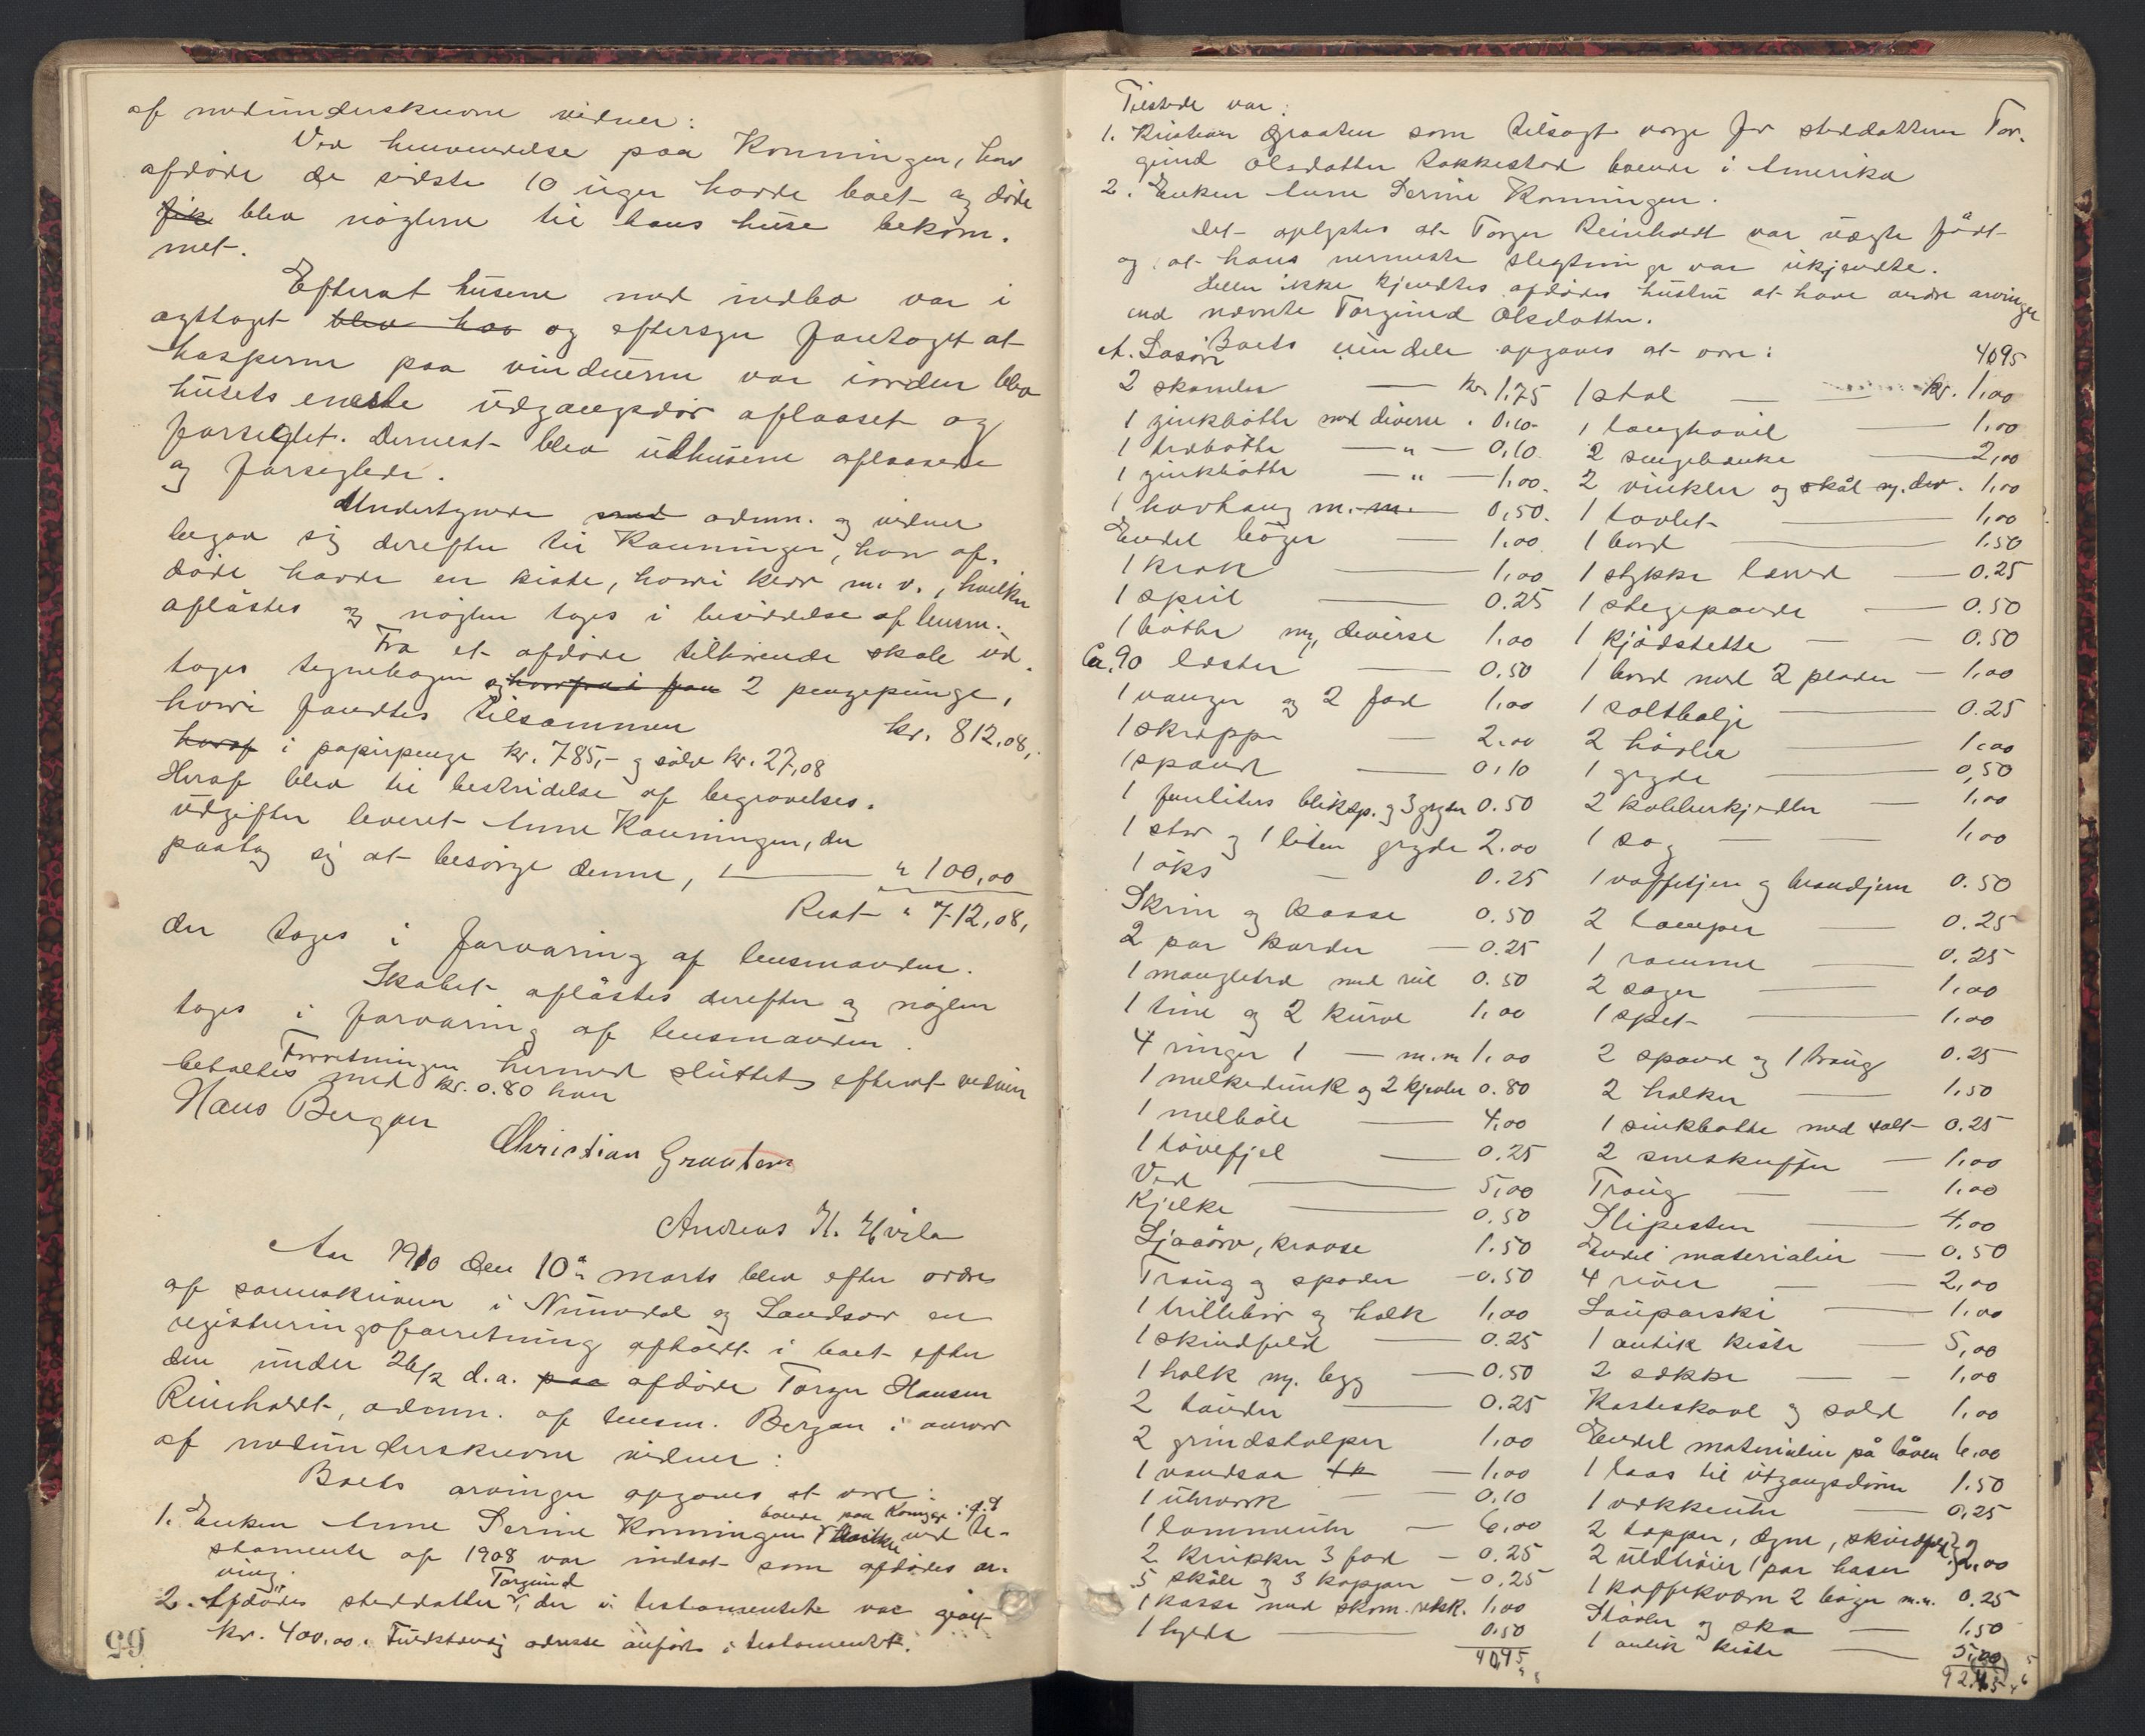 af medunderskrevne vidner:
Ved henvendelse paa Konningen, hvor
afdøde de sidste 10 uger havde boet og døde
fik blev nøglerne til hans huse bekom-
met.
Efterat husene med indbo var i
agttaget blev hav og eftersyn foretaget at
hasperne paa vinduerne var iorden blev
husets eneste udgangsdør aflaaset og
forseglet. Dernest blev udhusene aflaasede
og forseglede.
Undertegnede med admn. og vidner
begav sig derefter til Kanningen, hvor af-
døde havde en kiste, hvori klær m. v., hvilken
aflåstes og nøglen toges i besiddelse af lensm.
Fra et afdøde tilhørende skab ud-
toges tegnebogen og 2 pengepunge,
hvori fandtes tilsammen kr. 812,08,
heraf i papirpenge kr. 785,- og sølv kr. 27,08
Heraf blev til bestridelse af begravelses-
udgifter leveret Anne Kanningen, der
paatog sig at besørge denne, " 100,00
Rest " 712,08,
der toges i forvaring af lensmanden.
Skabet aflåstes derefter og nøglen
toges i forvaring af lensmanden.
Forretningen hermed sluttet efterat vidnerne
betaltes med kr. 0.80 hver
Hans Bergan
Christian Graaten
Andreas H. Hvila
Aar 1910 den 10de marts blev efter ordre
af sorenskriveren i Numedal og Sandsvær en
registreringsforretning afholdt i boet efter
den under 26/2 d.a. paa afdøde Torger Hansen
Reinholdt, admn. af lensm. Bergan i nærvær
af medunderskrevne vidner:
Boets arvinger opgaves at være:
boende paa Konningen
1. Enken Anne Serine Konningen hvilken ved te-
stamente af 1908 var indsat som afdødes ar-
ving.
Torgund
2. Afdødes steddatter, der i testamentet var givet
kr. 400,00. Fuldstændig adresse anført i testamentet.
65
Tilstede var:
1. Kristian Graaten som tilsagt verge for steddatteren Tor-
gund Olsdatter Bakkestad boende i Amerika
2. Enken Anne Serine Konningen.
Det oplystes at Torger Reinholdt var uægte født
og at hans nermeste slegtninge var ukjendte.
Heller ikke kjendtes afdødes hustru at have andre arvinger
end nævnte Torgund Olsdatter.
Boets eiendele opgaves at være:
A. Løsøre
2 skamler kr. 1.75
1 zinkbøtte med diverse 0.10
1 træbøtte " 0,10
1 zinkbøtte " 1.00
1 hovtang m. m. 0,50
Endel bøger 1.00
1 krak 1,00
1 speil 0.25
1 bøtte mg. diverse 1.00
Ca. 90 lester 0.50
1 vanger og 2 fad 1.00
1 skreppe 2.00
1 spand 0.10
1 femliters bliksp. og 3 gryder 0.50
1 stor og 1 liten gryde 2.00
1 øks 0.25
Skrin og kasse 0.50
2 par karder 0.25
1 mangletræ med rul 0.50
1 tine og 2 kurve 1.00
4 ringer 1 m.m 1.00
1 melkedunk og 2 kjeler 0.80
1 melbøle 4,00
1 tøvefjel 0.25
Ved 5,00
Kjelke 0.50
Ljaaorv, krasse 1.50
Traug og spader 0.50
1 trillebør og holk 1,00
1 skindfeld 0.25
1 holk mg. bygg 0.50
2 tønder 0.25
2 grindstolper 1,00
1 vandsaa 1k 1,00
1 uhrværk 0.10
1 lommeuhr 6,00
2 krukker 3 fad 0.25
5 skåle og 3 kopper 0.25
1 kasse med skom. redsk. 1.00
1 lygte 0.50
4095
4095
1 stol kr. 1,00
1 langhøvil 1,00
2 sengebænke 2,00
2 vinkler og skål mg. div. 1,00
1 tavlet 1,00
1 bord 1.50
1 stykke lærred 0.25
1 stegepande 0.50
1 kjødstette 0.50
1 bord med 2 plader 1,00
1 saltbalje 0.25
2 høvler 1,00
1 gryde 0,50
2 kobberkjedler 1,00
1 sag 1,00
1 vaffeljern og brandjern 0.50
2 lamper 0.25
1 ramme 0.25
2 sager 1,00
1 spet 1,00
2 spand og 1 traug 0.25
2 holker 1,50
1 sinkbøtte med salt 0.25
2 sneskuffer 1,00
Traug 1.00
Slipesten 4,00
Endel materialier 0.50
4 river 2,00
Lauparski 1,00
1 antik kiste 5,00
2 sække 1,00
Kasteskovl og sold 1,00
Endel materialier på låven 6,00
1 laas til utgangsdøren 1.50
1 vækkeuhr 0,25
2 tepper, dyne, skindfeld og
2 uldtrøier 1 par hoser 2,00
1 kaffekværn 2 bøger m.m. 0.25
Støvler og sko 1.50
1 antik kiste 5,00
92,45